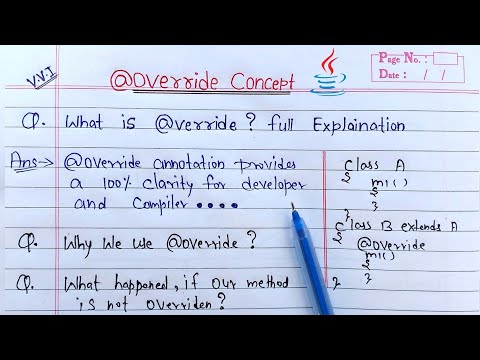 V.V.I
@Override Concept
Page No. :
Date : / /
Q. What is @verride? full Explaination
Ans:→ @override annotation provides
a 100% clarity for developer
and Compiler ....
Q. Why We we @override?
Q. What happened, if our method
is not overriden?
Class A
{
m1()
{
}
}
Class B extends A
{
@override
m1()
{
}
}